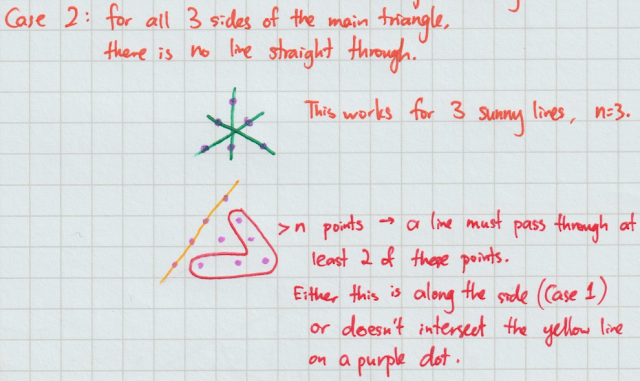 Case 2: for all 3 sides of the main triangle,
there is no line straight through.
This works for 3 sunny lines, n=3.
>n points → a line must pass through at
least 2 of these points.
Either this is along the side (Case 1)
or doesn't intersect the yellow line
on a purple dot.